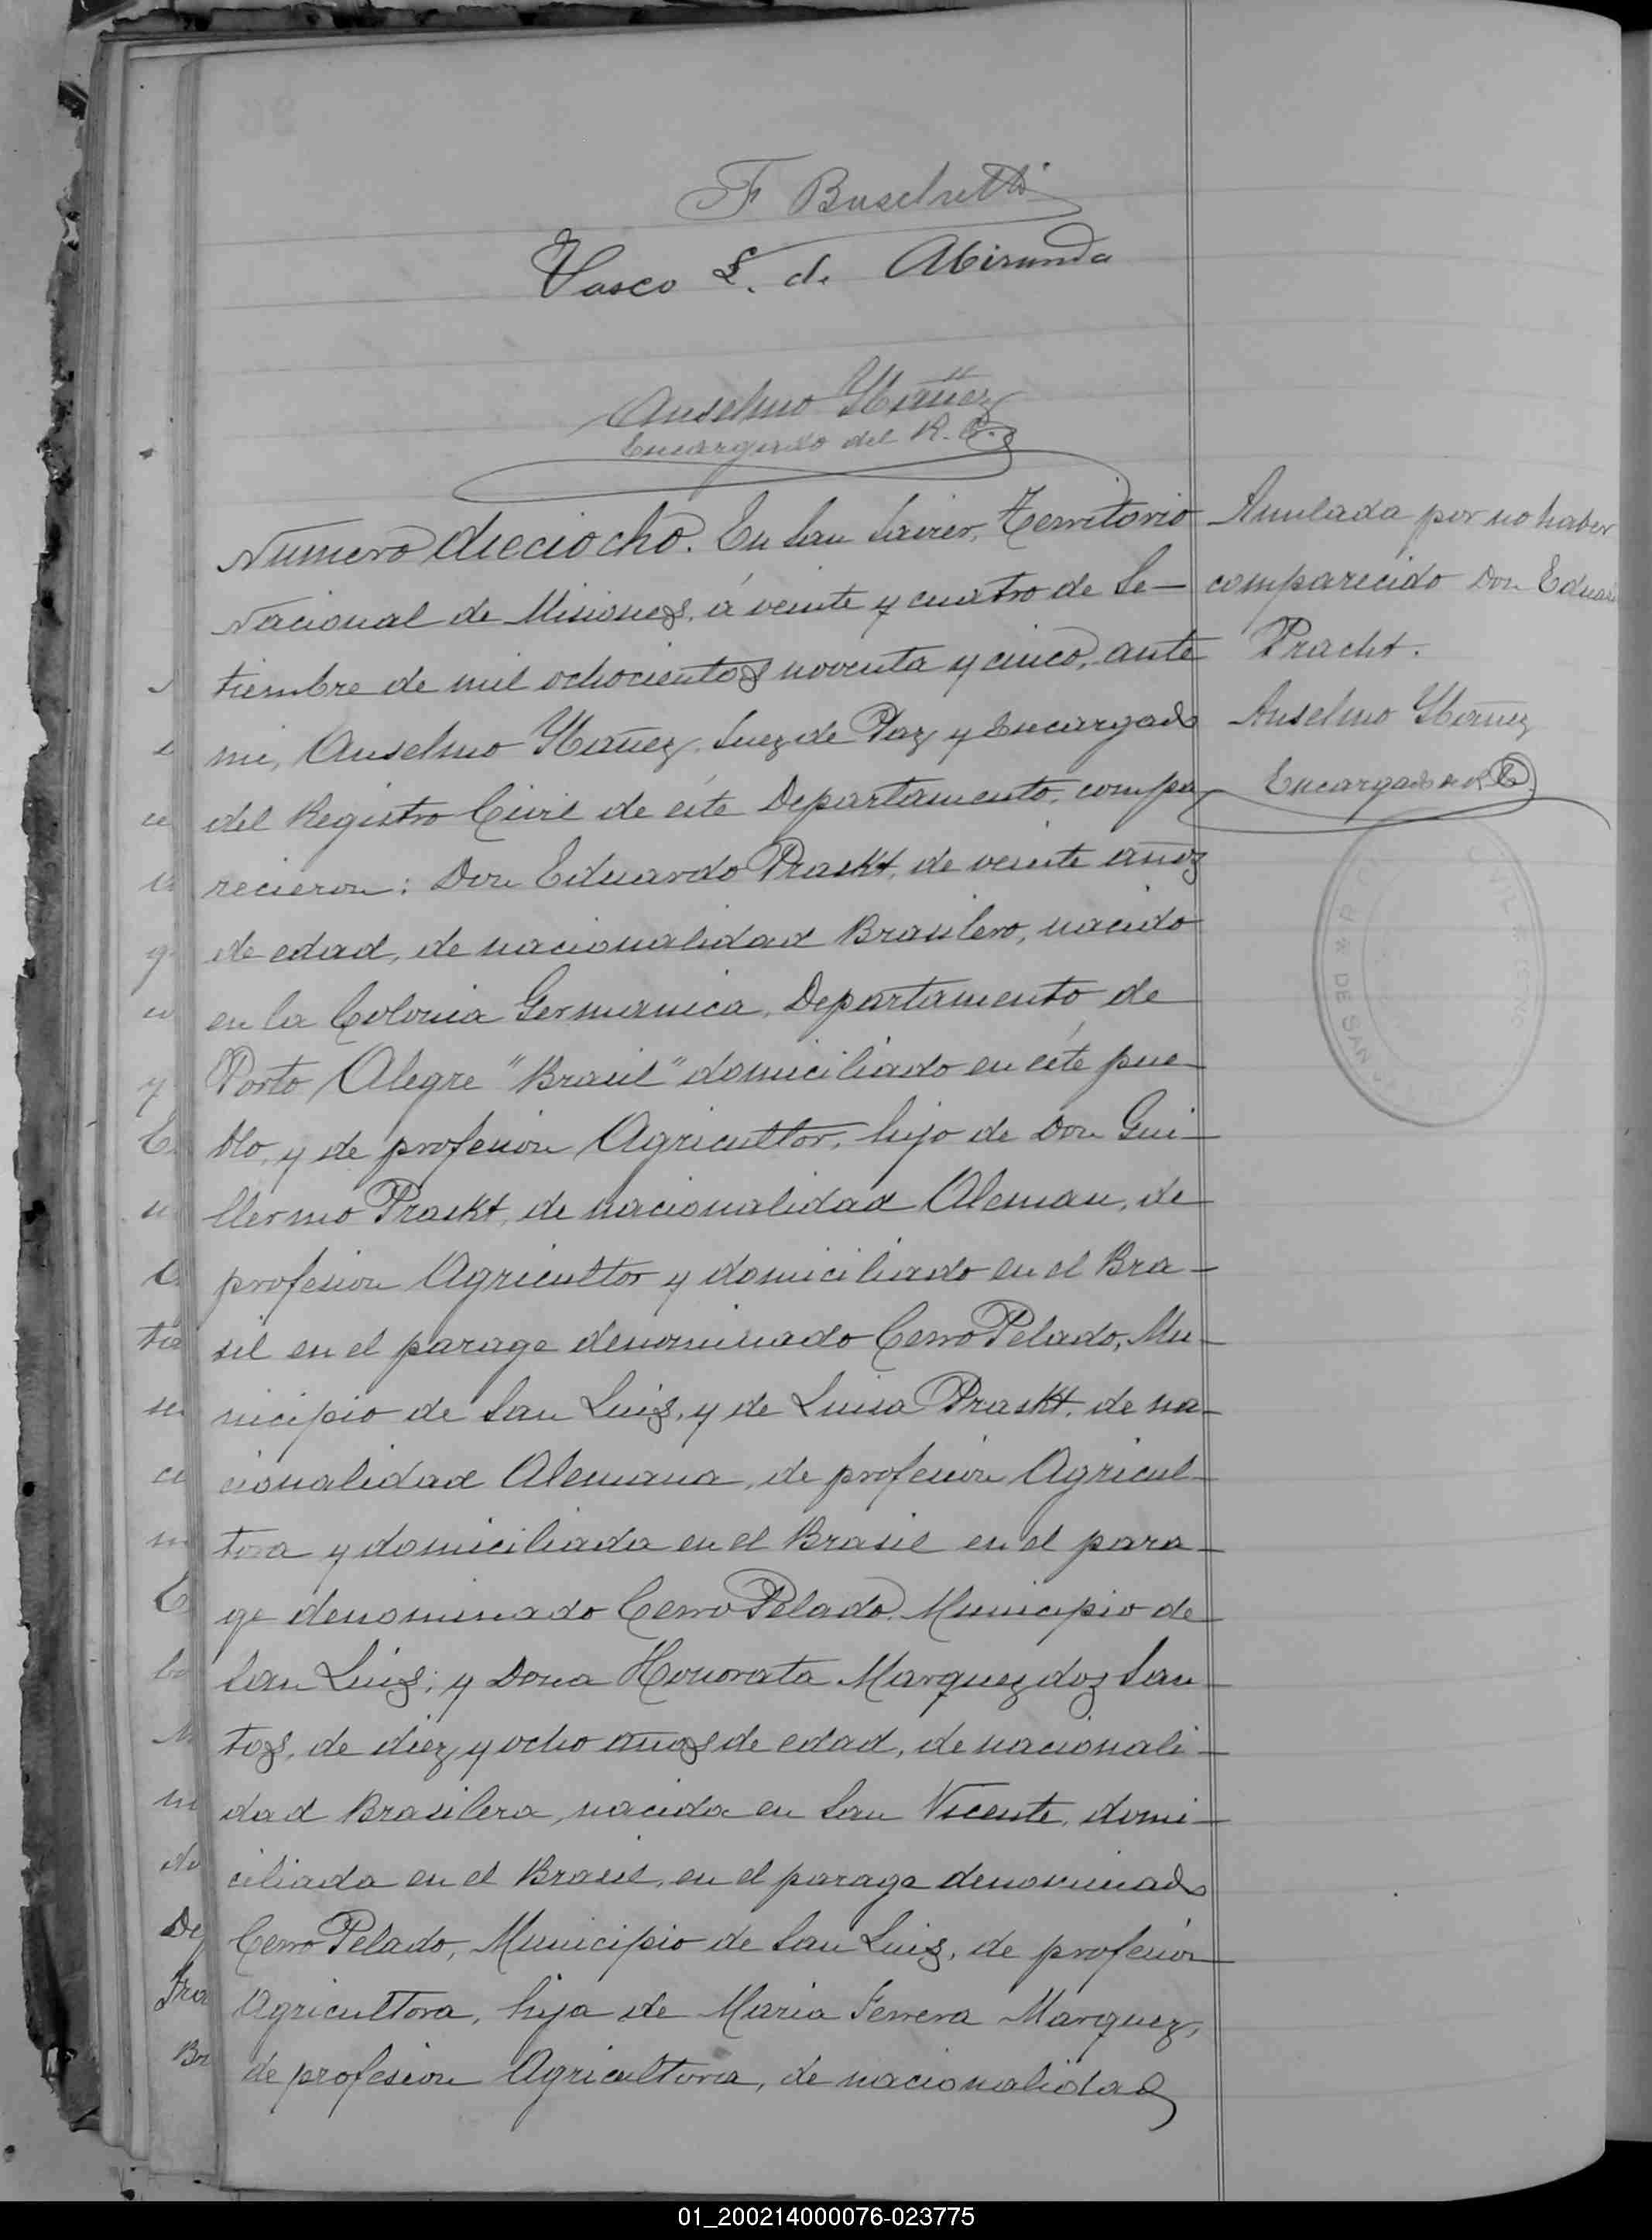 F Buschetti
Vasco L. de Abirunda
Anselmo Ybañez
Encargado del R. C.
Numero dieciocho. En San Javier, Territorio
Nacional de Misiones, á veinte y cuatro de Se-
tiembre de mil ochocientos noventa y cinco, ante
mi, Anselmo Ybañez, Juez de Paz y Encargado
del Registro Civil de éste Departamento, compa
recieron: Don Eduardo Praskt, de veinte años
de edad, de nacionalidad Brasilero, nacido
en la Colonia Germanica, Departamento de
Porto Alegre "Brasil" domiciliado en éste pue-
blo, y de profesion Agricultor, hijo de Don Gui-
llermo Praskt, de nacionalidad Aleman, de
profesion Agricultor y domiciliado en el Bra-
sil en el parage denominado Cerro Pelado, Mu-
nicipio de San Luis, y de Luisa Praskt, de na-
cionalidad Alemana, de profesion Agricul-
tora y domiciliada en el Brasil en el para-
ge denominado Cerro Pelado, Municipio de
San Luis; y Dona Honorata Marquez dos San-
tos, de diez y ocho años de edad, de nacionali-
dad Brasilera, nacida en San Vicente, domi-
ciliada en el Brasil, en el parage denominado
Cerro Pelado, Municipio de San Luis, de profesión
Agricultora, hija de Maria Ferrera Marquez,
de profesion Agricultora, de nacionalidad
Anulada por no haber
comparecido Don Eduardo
Pracht.
Anselmo Ybañez
Encargado del R. C.
DE SAN
01_200214000076-023775